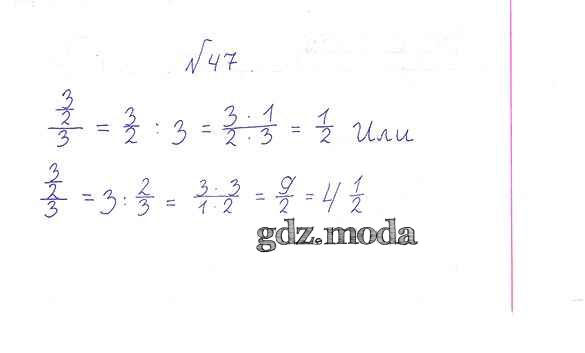 №47.
3/2/3 = 3/2 : 3 = 3 · 1/2 · 3 = 1/2 Или
3/2/3 = 3 : 2/3 = 3 · 3/1 · 2 = 9/2 = 4 1/2
gdz.moda